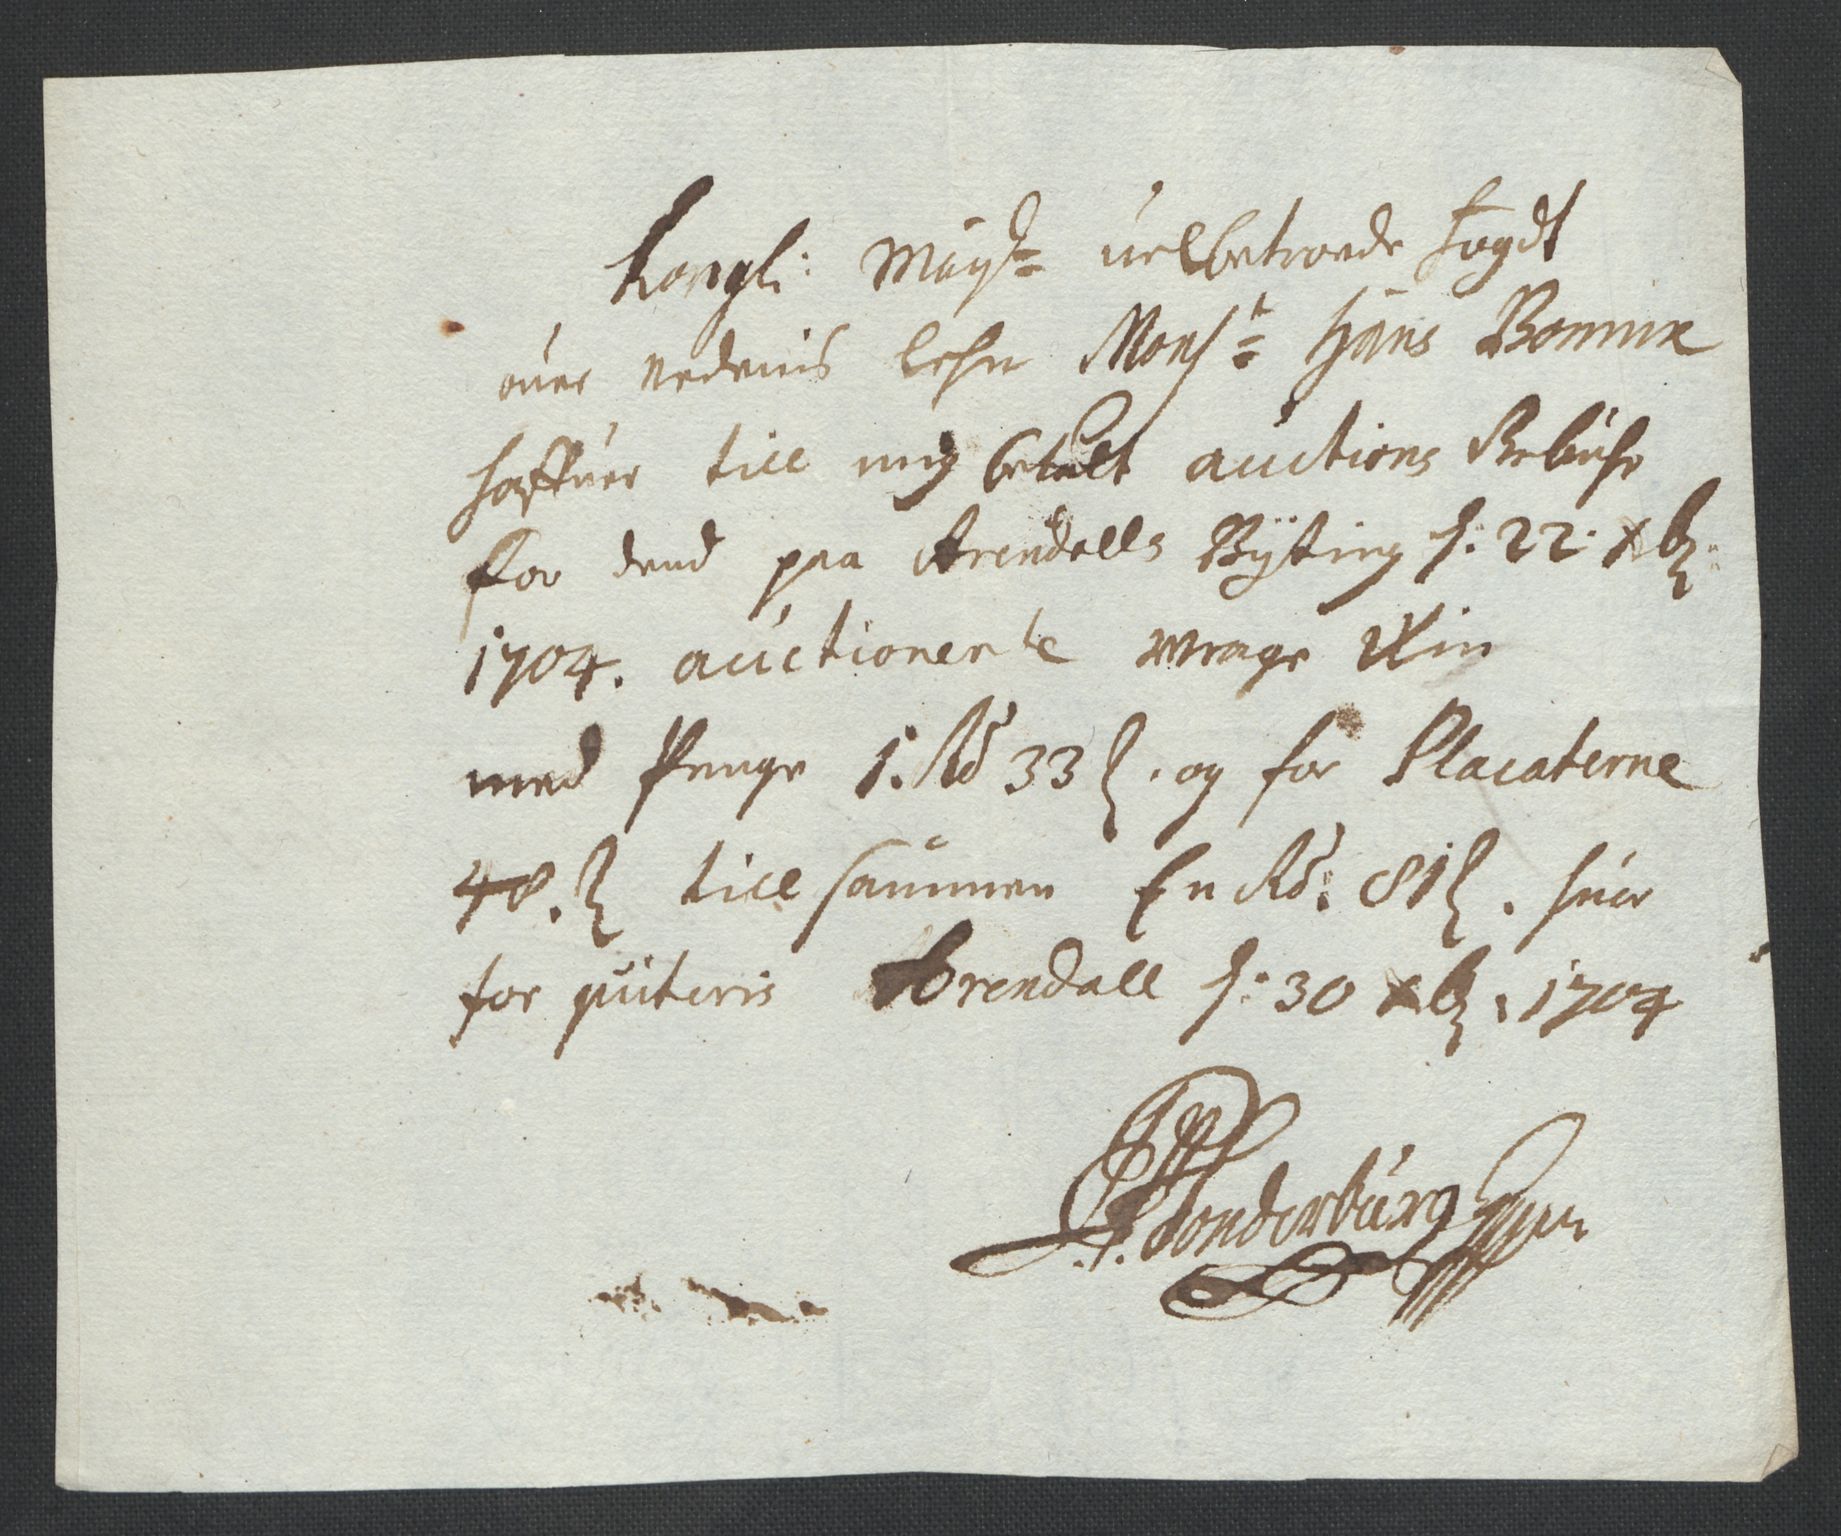 Kongl: Mayst: velbetroede Fogdt
over Nedenis Lehn Monsr: Hans Bomme
haffuer till mig betalt auctions Rebühr
for dend paa Arendalls Bÿting d: 22: Xbr:
1704. auctionerte wrage Win
med Penge 1. Rd 33 s. og for Placaterne
48. s till sammen En Rd: 81 s. huor
for quiteris Arendall d: 30 Xbr: 1704
Sonderburg